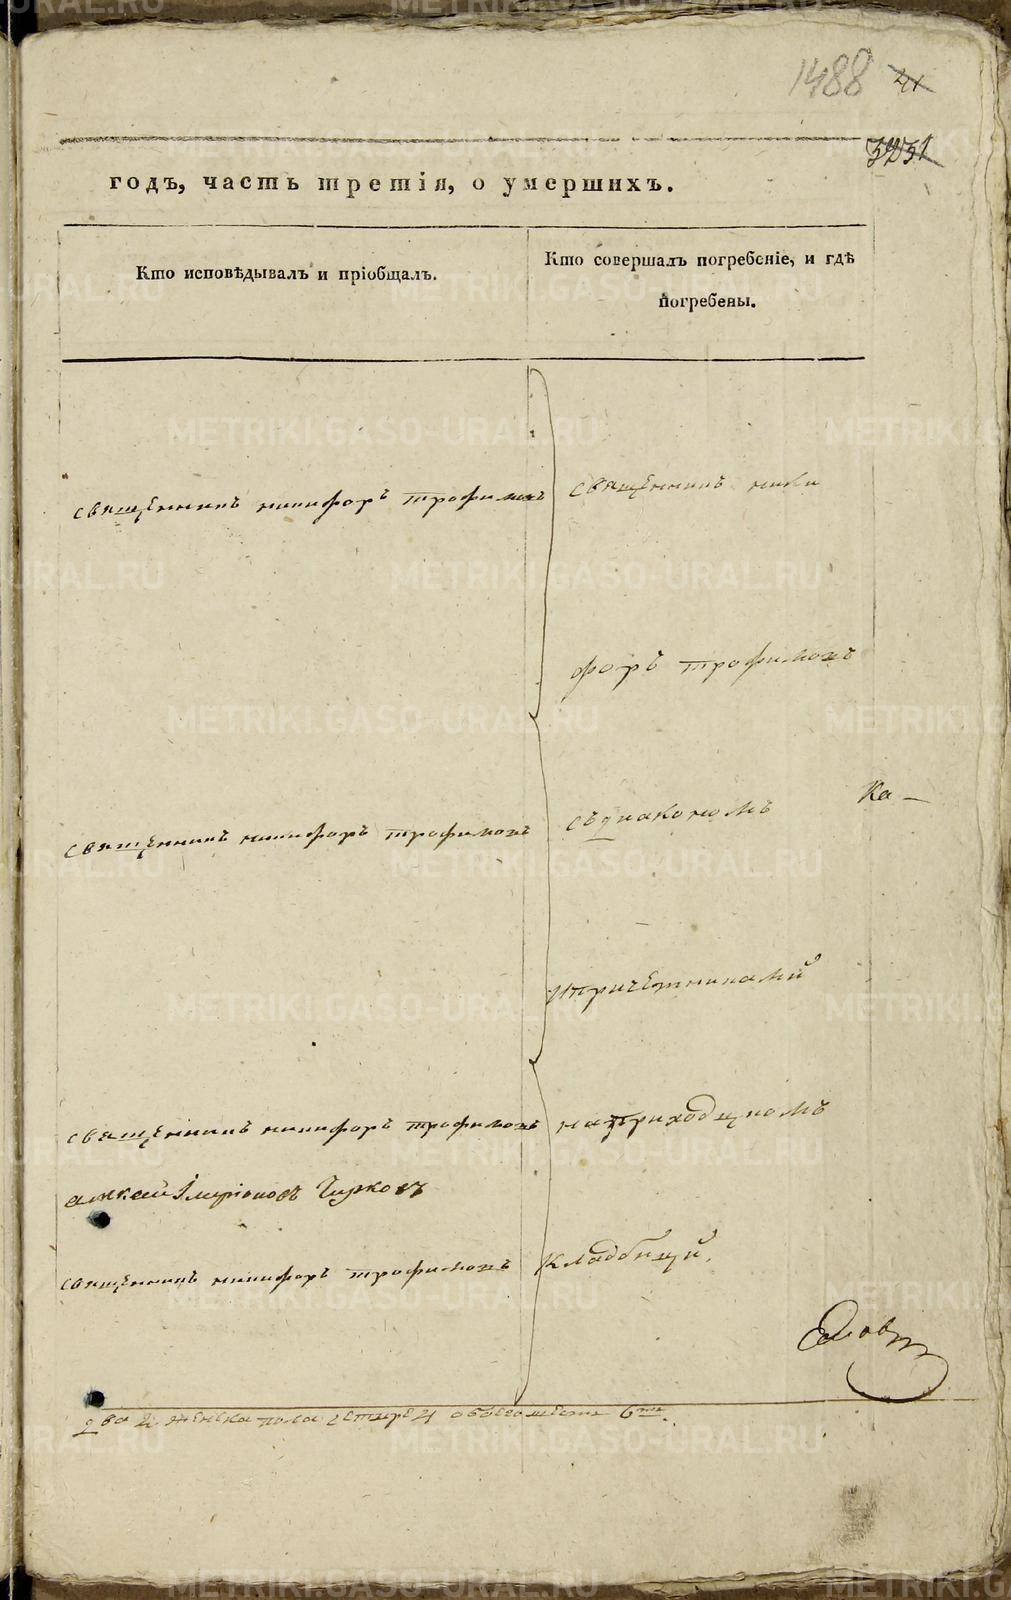 1488 41
годъ, часть третія, о умершихъ.
Кто исповѣдывалъ и пріобщалъ.
Кто совершалъ погребеніе, и гдѣ
погребены.
священникъ никифоръ трофимовъ
священникъ ники
форъ трофимовъ
священникъ никифоръ трофимовъ
съ диакономъ
Ка-
и причетниками
священникъ никифоръ трофимовъ
на приходскомъ
Чирковъ
священникъ никифоръ трофимовъ
кладбищи.
два 2 женска пола четыре 4 обоего 6ть.
METRIKI.GASO-URAL.RU